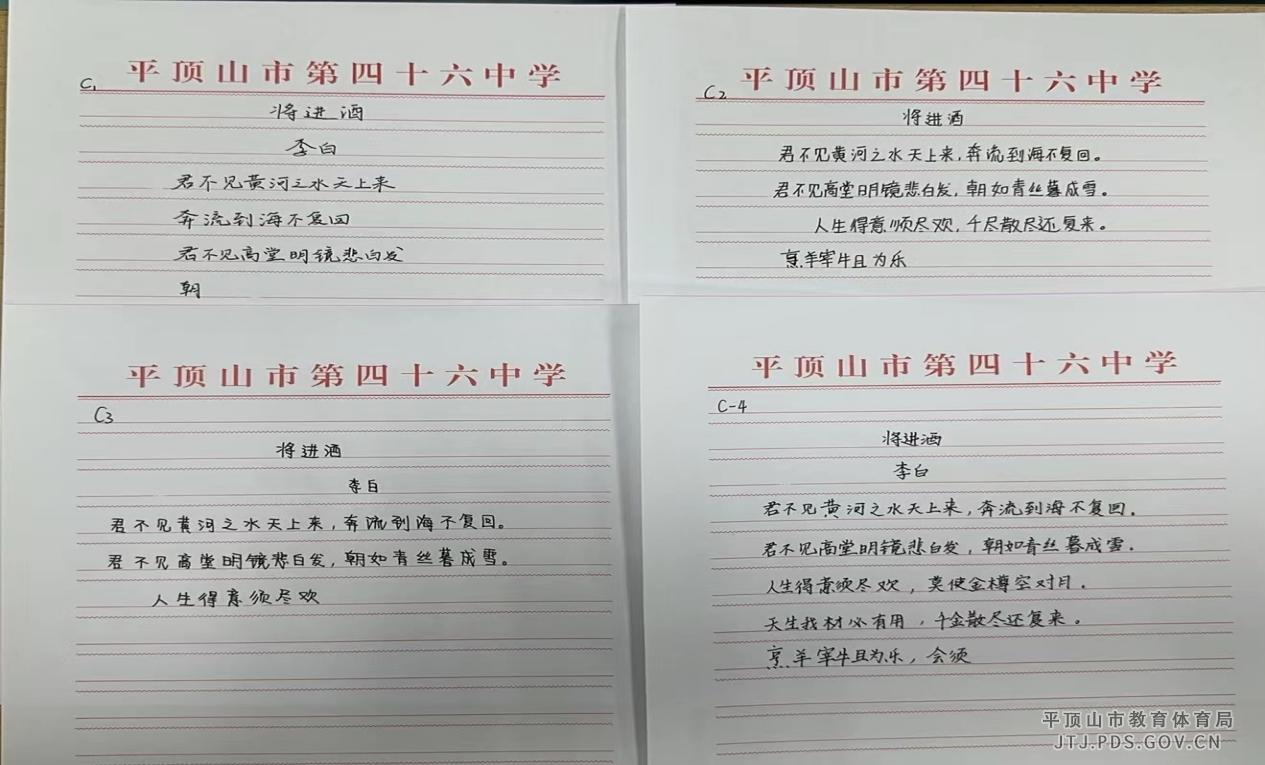 平顶山市第四十六中学
C1
将进酒
李白
君不见黄河之水天上来
奔流到海不复回
君不见高堂明镜悲白发
朝
平顶山市第四十六中学
C2
将进酒
君不见黄河之水天上来,奔流到海不复回。
君不见高堂明镜悲白发,朝如青丝暮成雪。
人生得意顺尽欢,千尽散尽还复来。
烹羊宰牛且为乐
平顶山市第四十六中学
C3
将进酒
李白
君不见黄河之水天上来,奔流到海不复回。
君不见高堂明镜悲白发,朝如青丝暮成雪。
人生得意须尽欢
平顶山市第四十六中学
C-4
将进酒
李白
君不见黄河之水天上来,奔流到海不复回.
君不见高堂明镜悲白发,朝如青丝暮成雪.
人生得意须尽欢,莫使金樽空对月.
天生我材必有用,千金散尽还复来。
烹羊宰牛且为乐,会须
平顶山市教育体育局
JTJ.PDS.GOV.CN